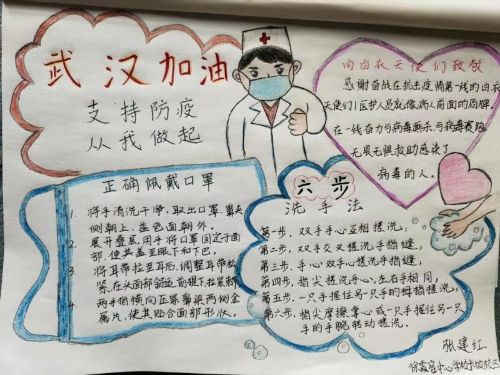 武汉加油
支持防疫
从我做起
向白衣天使们致敬
感谢奋战在抗击疫情第一线的白衣
天使们!医护人员就像病人前面的盾牌,
在一线奋力与病毒厮杀,与病毒赛跑
无畏无惧救助感染了
病毒的人。
正确佩戴口罩
1. 将手清洗干净,取出口罩,鼻夹
侧朝上,蓝色面朝外。
2. 展开叠层,用手将口罩固定于面
部,使其盖至眼下和下巴。
3. 将耳带拉至耳后,调整耳带松
紧,在头面部
4. 两手指横向正压鼻梁两侧金
属片,使其贴合面部形状。
六步
洗手法
第一步,双手手心互相搓洗。
第二步,双手交叉搓洗手指缝。
第三步,手心双手搓洗手指缝。
第四步,指尖搓洗手心,左右手相同。
第五步,一只手握住另一只手的拇指搓洗。
第六步,指尖摩擦掌心或一只手握另一只
手的手腕转动搓洗。
张建红
徐霞客中心学校